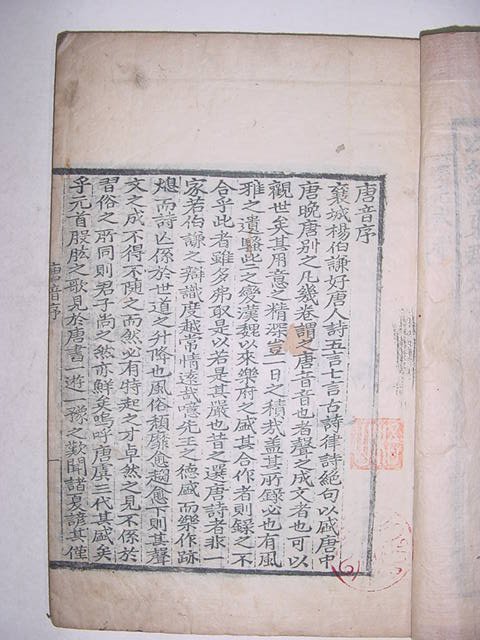 唐音序
襄城楊伯謙好唐人詩五言七言古詩律詩絶句以盛唐中
唐晚唐別之凡幾卷謂之唐音音也者聲之成文者也可以
觀世矣其用意之精深豈一日之積哉盖其所録必也有風
雅之遺騷些之變漢魏以來樂府之盛其合作者則録之不
合乎此者雖多弗取是以若是其嚴也昔之選唐詩者非一
家若伯謙之辯識度越常情遠哉噫先王之德盛而樂作跡
熄而詩亡係於世道之升降也風俗頹靡愈趨愈下則其聲
文之成不得不随之而然必有特起之才卓然之見不係於
習俗之所同則君子尚之然亦鮮矣嗚呼唐虞三代其盛矣
乎元首股肱之歌見於虞書一遊一豫之歎聞諸夏諺其僅
唐音序